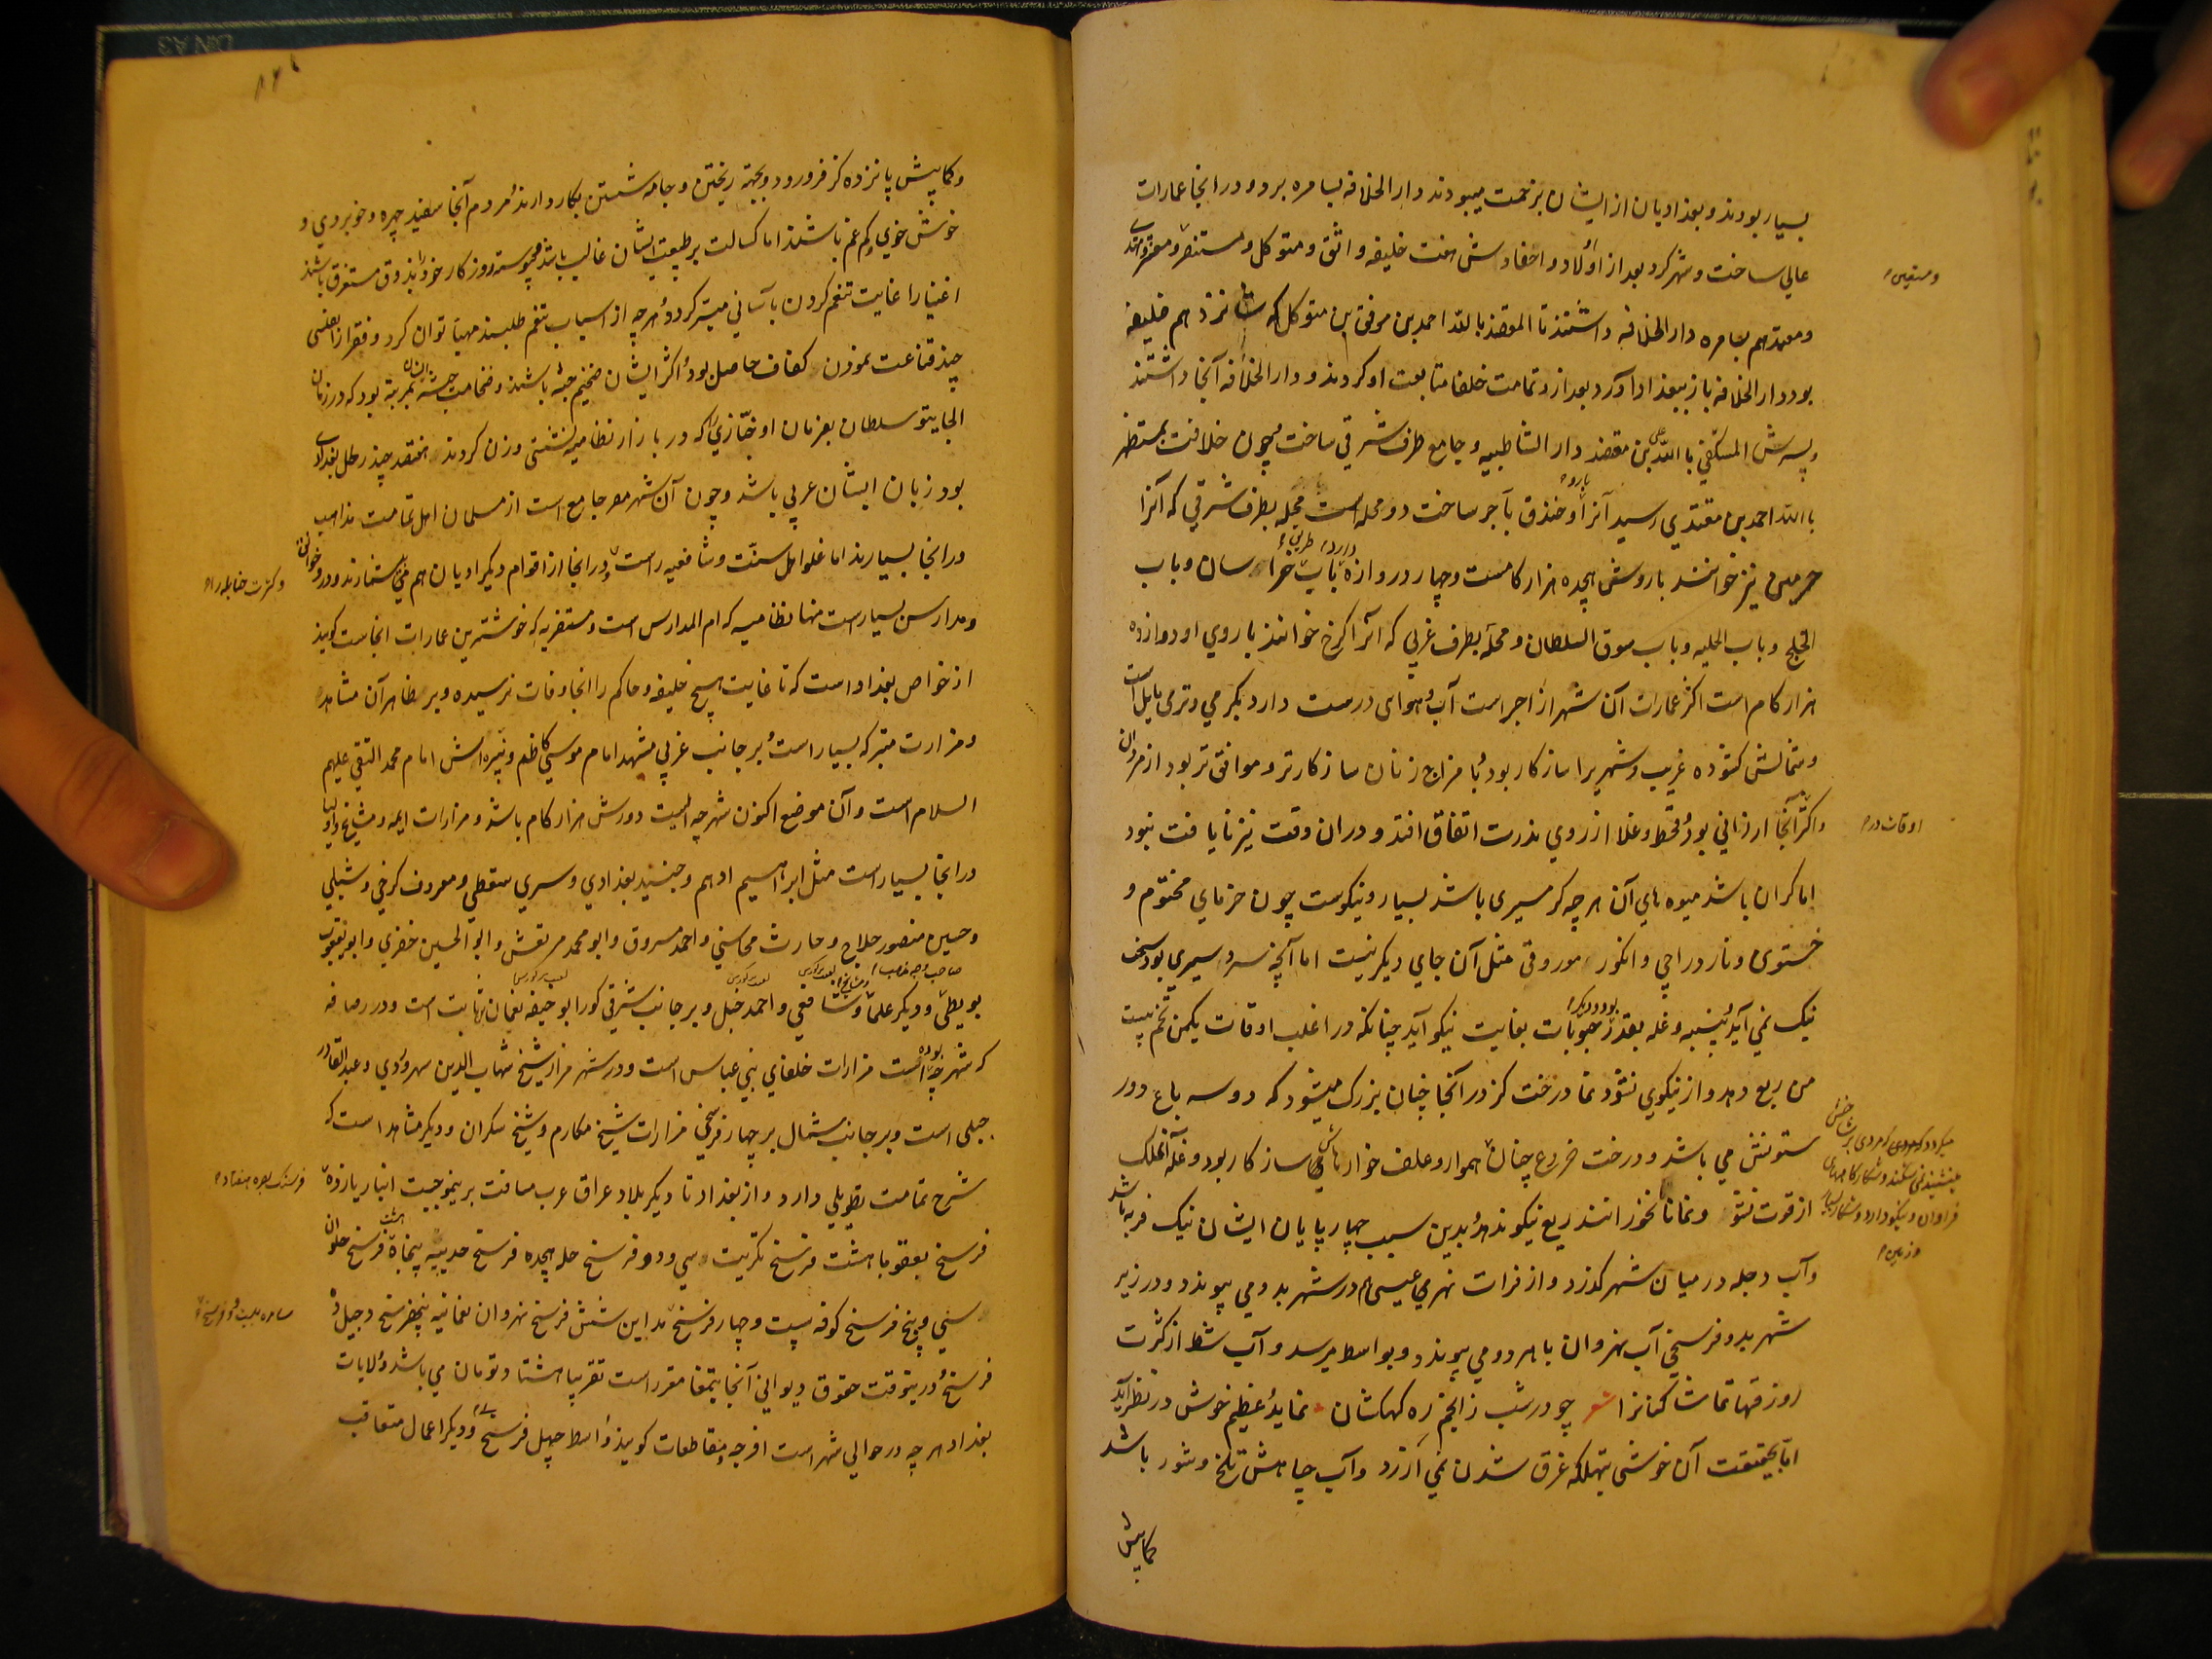 بسیار بودند و بغدادیان از ایشان بزحمت میبودند دار الخلافه بسامره برد و در انجا عمارات
عالی ساخت و شهر کرد بعد از اولاد و احفادش هفت خلیفه واثق و متوکل و مستنصر و معتز و مهتدی
و معتمد هم بسامره دار الخلافه داشتند تا المعتضد بالله احمد بن موفق بن متوکل که شانزدهم خلیفه
بود دار الخلافه باز ببغداد آورد بعد ازو تمامت خلفا متابعت او کردند و دار الخلافه آنجا داشتند
و پسرش المکتفی با الله علی بن معتضد دار الشاطبیه و جامع طرف شرقی ساخت و چون خلافت بمستظهر
با الله احمد بن مقتدی رسید آنرا بارو و خندق بآجر ساخت دو محله است محله بطرف شرقی که آنرا
حرمین نیز خوانند باروش هجده هزار کامست و چهار دروازه دارد باب خراسان و باب
الخلج و باب الحلبه و باب سوق السلطان و محله بطرف غربی که آنرا کرخ خوانند باروی او دوازده
هزار کام است اکثر عمارات آن شهر از اجر است آب و هوای درست دارد بکرمی و نرمی مایل است
و شمالش کشوده غریب و شهریرا سازکار بود و با مزاج زنان سازکارتر و موافق تر بود از مردان
و اکثر آنجا ارزانی بود و قحط و غلا از روی ندرت اتفاق افتد و دران وقت نیز نایافت نبود
اما کران باشد میوه های آن هرچه کرمسیری باشد بسیار و نیکوست چون خرمای مختوم و
خستوی و نار دراجی و انکور مورقی مثل آن جای دیکر نیست اما آنچه سردسیری بود سخت
نیک نمی آید و پنبه و غله بقدر بود و دیکر حبوبات بغایت نیکو آید چنانکه در اغلب اوقات یکمن تخم بیست
من ریع دهد و از نیکوی نشو و نما درخت کز در آنجا چنان بزرک میشود که دو سه باع دور
ستونش می باشد و درخت خروع چنان هموار و علف خوارهاش سازکار بود و غله آنملک
از قوت نشو و نما نا نخورانند ریع نیکو ندهد و بدین سبب چهارپایان ایشان نیک فربه باشد
و آب دجله در میان شهر کذرد و از فرات نهر عیسی هم در شهر بدو می پیوندد و در زیر
شهر بدو فرسخی آب نهروان با هر دو می پیوندد و بواسط میرسد و آب شط از کثرت
روز قها تماشا کنانرا شعر چو در شب ز انجم ره کهکشان نماید و عظیم خوش در نظر آید
اما بحقیقت آن خوشی بتهلکه غرق شدن نمی ارزد و آب چاهش تلخ و شور باشد
کمابیش
و مستعین
اوقات در
و کمابیش پانزده کز فرورود و بجهة ریختن و جامه شستن بکار دارند مردم آنجا سفید چهره و خوبروی و
خوش خوی و کم غم باشند اما کسالت بر طبیعت ایشان غالب باشد و پیوسته روزکار خود را بذوق مستغرق باشند
اغنیا را غایت تنعم کردن بآسانی میسر کردد و هرچه از اسباب تنعم طلبند مهیا توان کرد و فقرا را
چیز قناعت نمودن کفاف حاصل بود و اکثر ایشان ضخیم جثه باشند و ضخامت جثه بمرتبه بود که در زمان
الجایتو سلطان بفرمان او خبازی را که در بازار نظامیه نشستی وزن کردند هفتصد چند رطل بغدادی
بود زبان ایشان عربی باشد و چون آن شهر مصر جامع است از مسلمان اهل تمامت مذاهب
در انجا بسیارند اما غلو اهل سنت و شافعیه راست و در انجا از اقوام دیکر ادیان هم بیشمارند و درو خوانق
و مدارس بسیار است منها نظامیه که ام المدارس است و مستنصریه که خوشترین عمارات انجاست کویند
از خواص بغداد است که تا غایت هیچ خلیفه و حاکم را انجا وفات نرسیده و بر ظاهر آن مشاهد
و مزارت متبرکه بسیار است و بر جانب غربی مشهد امام موسی کاظم و نبیره اش امام محمد التقی علیهم
السلام است و آن موضع اکنون شهرچه ایست دورش هزار کام باشد و مزارات ایمه و مشایخ و اولیا
در انجا بسیار است مثل ابراهیم ادهم و جنید بغدادی و سری سقطی و معروف کرخی و شبلی
و حسین منصور حلاج و حارث محاسبی و احمد مسروق و ابو محمد مرتعش و ابو الحسین حصری و ابو یعقوب
بویطی و دیکر علما و شافعی و احمد حنبل و بر جانب شرقی کور ابو حنیفه نعمان ثابت است و در رصافه
که شهرچه بوده است مزارات خلفای بنی عباس است و در شهر مزار شیخ شهاب الدین سهروردی و عبد القادر
جیلی است و بر جانب شمال بر چهار فرسخی مزارات شیخ مکارم و شیخ سکران و دیکر مشاهد است که
شرح تمامت تطویلی دارد و از بغداد تا دیکر بلاد عراق عرب مسافت برینموجبست انبار یازده
فرسخ بعقوبا هشت فرسخ تکریت سی و دو فرسخ حله هجده فرسخ حدیثه پنجاه فرسخ حلوان
سی و پنج فرسخ کوفه بیست و چهار فرسخ مداین شش فرسخ نهروان نعمانیه پنج فرسخ دجیل ده
فرسخ و درینوقت حقوق دیوانی آنجا بتمغا مقرر است تقریبا هشتاد تومان می باشد و ولایات
بغداد هرچه در حوالی شهر است انرا مقاطعات کویند واسط چهل فرسخ و دیکر اعمال متعاقب
و کثرت حنابله راه
فرسنک بصره هفتاد
سامره بیست و دو فرسخ